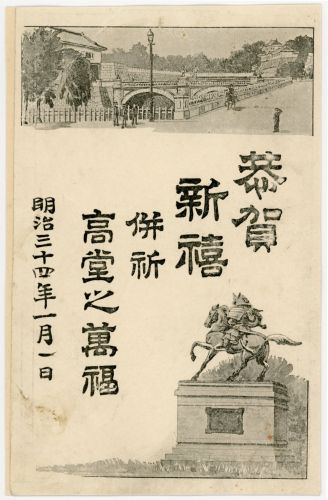 恭賀
新禧
併祈
高堂之萬福
明治三十四年一月一日